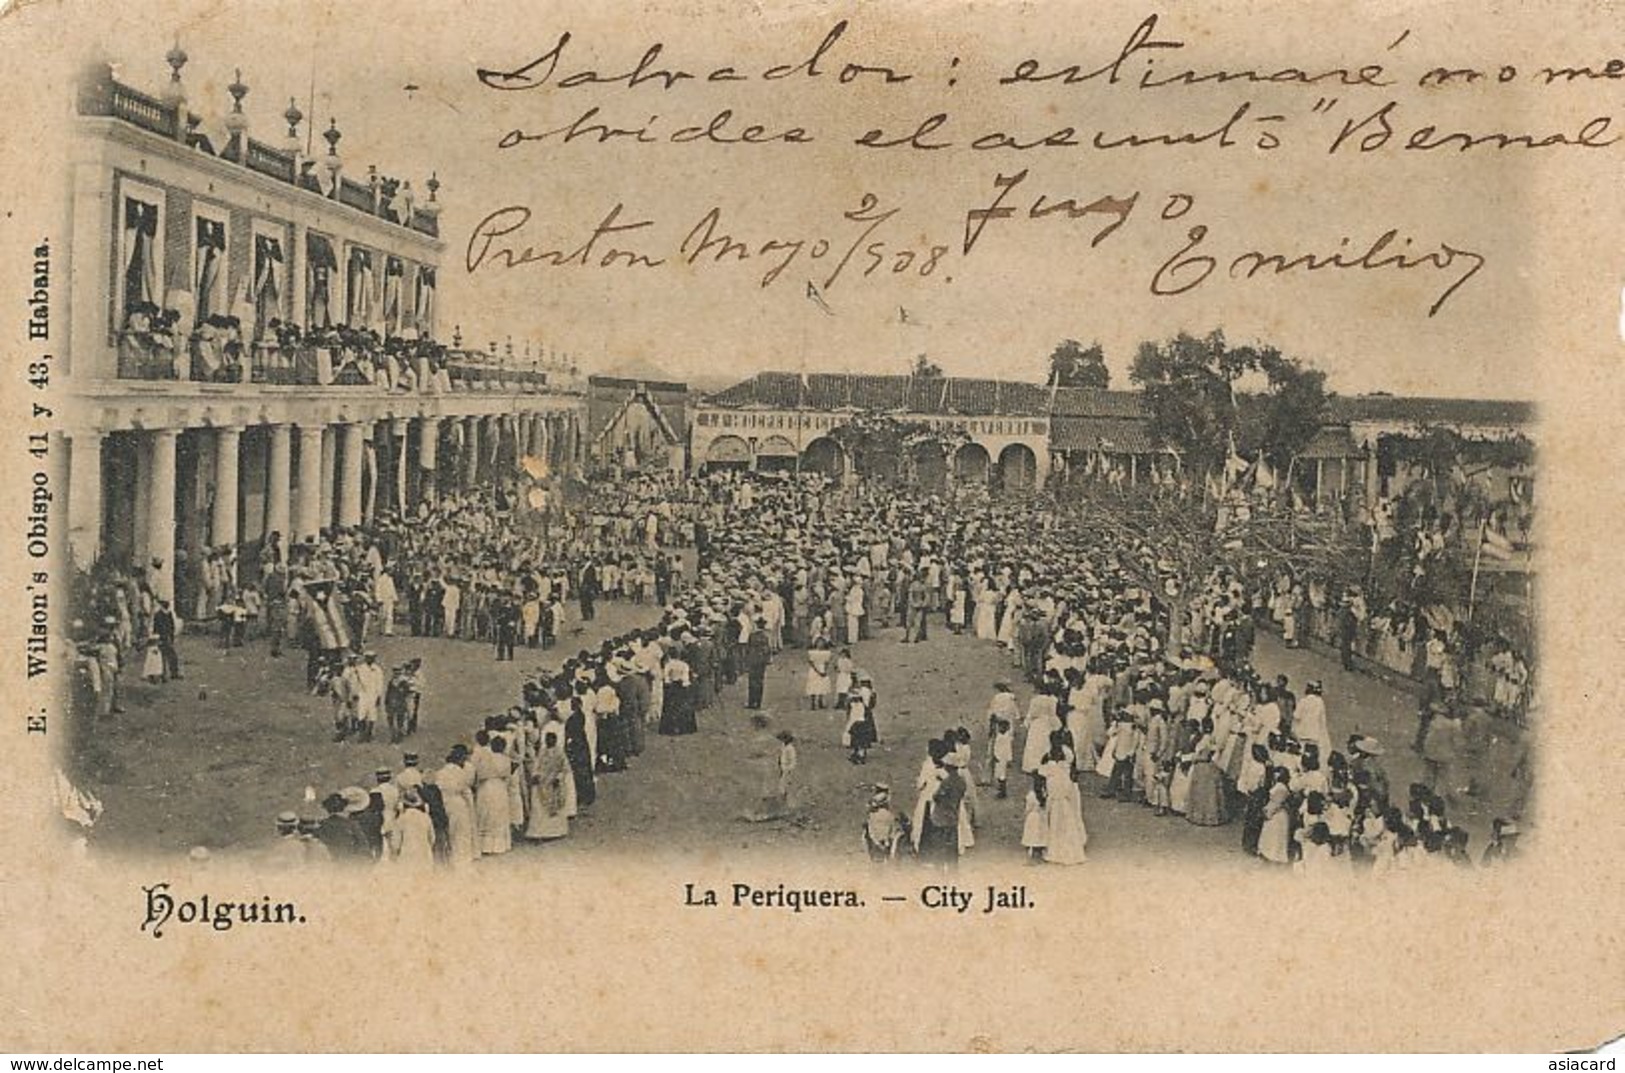 Salvador: estimaré no me
olvides el asunto "Bernal
Tuyo
Preston Mayo 2/908.
Emilio
E. Wilson's Obispo 41 y 43, Habana.
Holguin.
La Periquera. — City Jail.
www.delcampe.net
asiacard